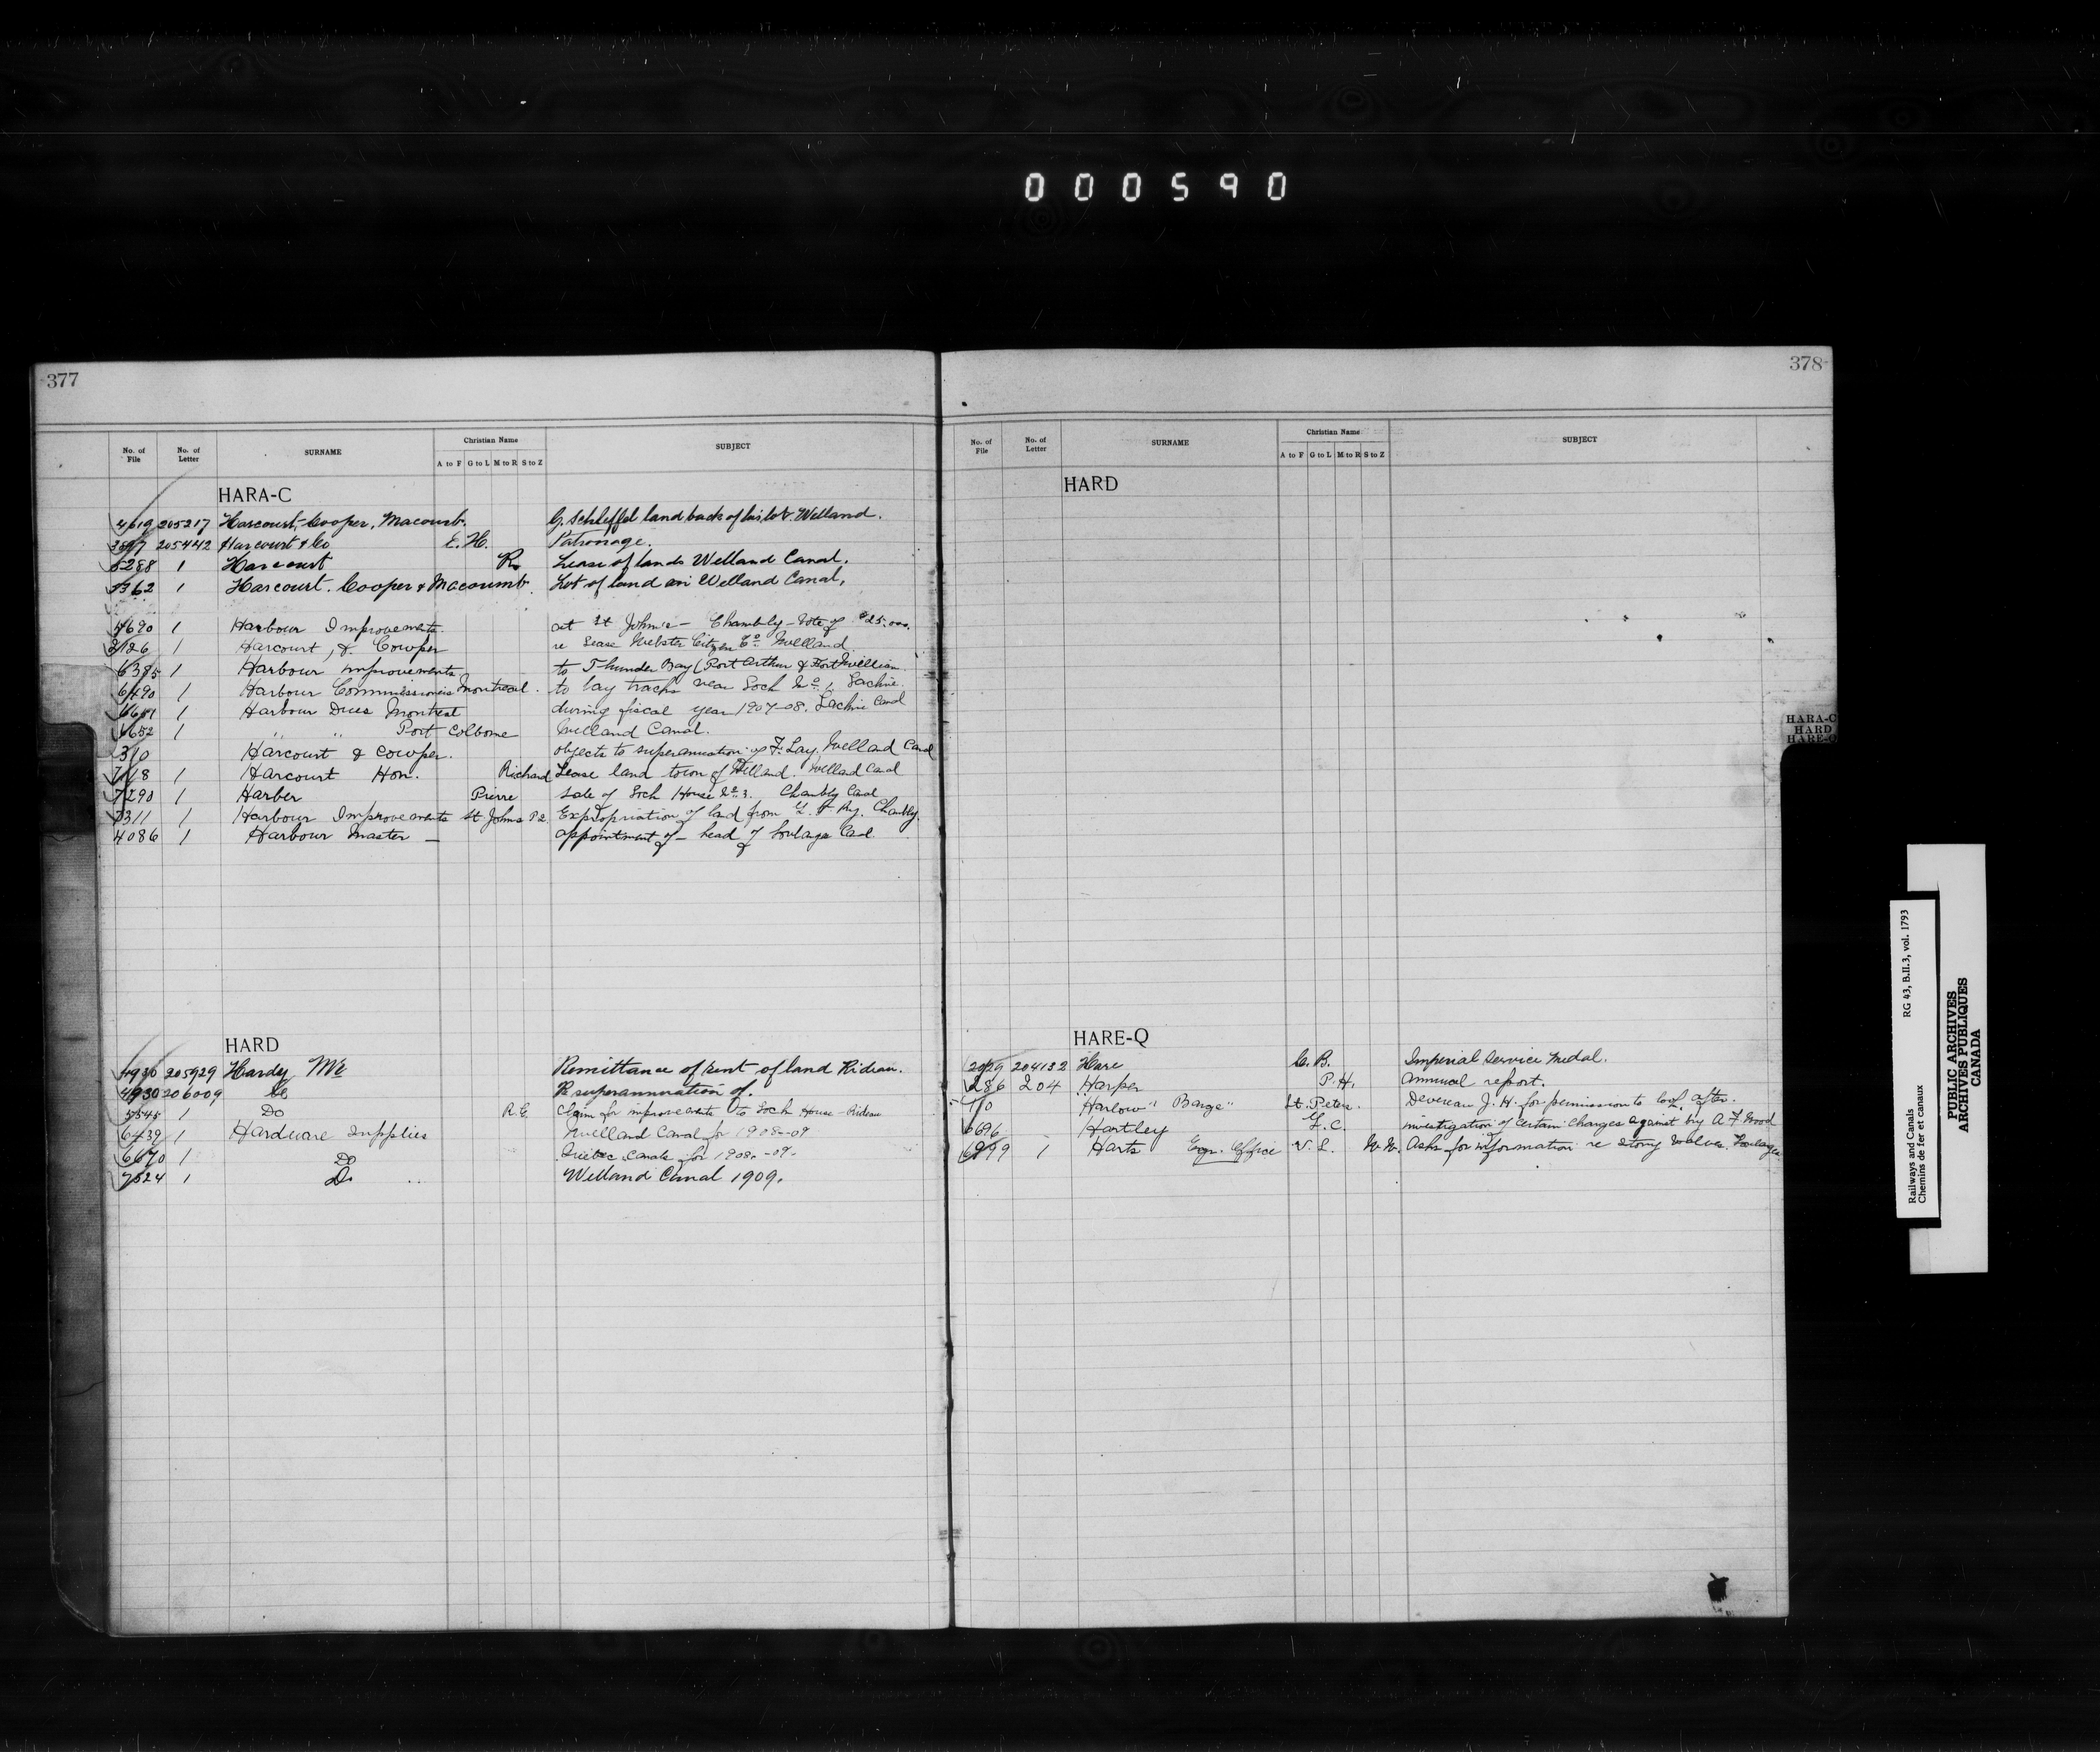 000590
377
No. of File No. of Letter SURNAME Christian Name A to F G to L M to R S to Z SUBJECT
HARA-C
4619 205217 Harcourt, Cooper, Macoumb. G. Schleffel land back of his lot. Welland.
205442 Harcourt & Co E. H. Patronage.
5288 1 Harcourt R. Lease of lands Welland Canal.
1 Harcourt. Cooper & Macoumb. Lot of land on Welland Canal.
4690 1 Harbour Improvements. at St John's – Chambly – Vote of $25,000.
1 Harcourt, & Cowper re Lease Webster Citizen Co. Welland.
6385 1 Harbour improvements to Thunder Bay (Port Arthur & Fort William
6490 1 Harbour Commissioners Montreal. to lay tracks near Lock No. 1, Lachine.
6651 1 Harbour Dues Montreal during fiscal year 1907-08. Lachine Canal
6652 1 " " Port Colborne Welland Canal.
310 Harcourt & Cowper. objects to superannuation of F. Lay. Welland Canal
7118 1 Harcourt Hon. Richard Lease land town of Welland. Welland Canal
7290 1 Harber Pierre Sale of Lock House No. 3. Chambly Canal
1 Harbour Improvements St Johns P.Q. Expropriation of land from G. T. Ry. Chambly.
4086 1 Harbour Master – appointment of – head of Soulanges Canal
HARD
4936 205929 Hardy Mr Remittance of rent of land Rideau.
4930 206009 do R superannuation of.
1 Do R. E. Claim for improvements to Lock House – Rideau
6439 1 Hardware Supplies Welland Canal for 1908-09
6670 1 Do Quebec Canals for 1908-09.
7524 1 Do Welland Canal 1909.
378
No. of File No. of Letter SURNAME Christian Name A to F G to L M to R S to Z SUBJECT
HARD
HARE-Q
2029 204132 Hare C. B. Imperial Service Medal.
286 204 Harper P. H. Annual report.
Harlow " Barge" St. Peters. Devereau J. H. for permission to look after.
6696 Hartley F. C. investigation of certain charges against by A F Wood
1 Harts Engr. Office W. W. Asks for information re Stony valves. Soulanges
HARA-C
HARD
HARE-Q
Railways and Canals RG 43, B.II.3, vol. 1793
Chemins de fer et canaux
PUBLIC ARCHIVES
ARCHIVES PUBLIQUES
CANADA